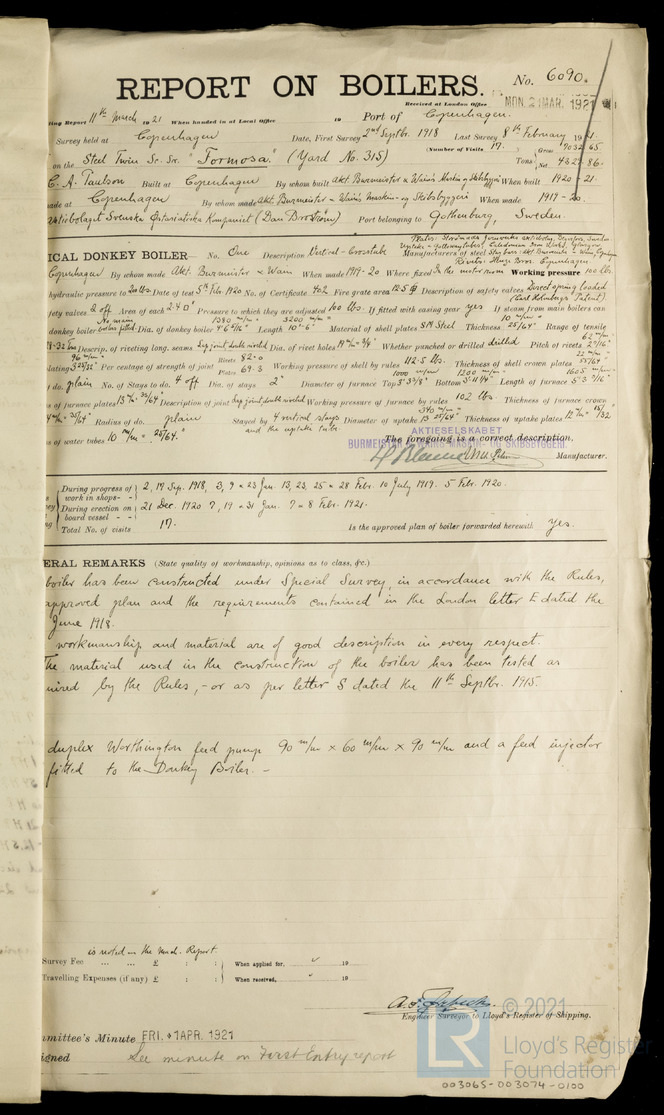 REPORT ON BOILERS.
No. 6090.
Received at London Office MON. 21 MAR. 1921
ting Report 11th March 1921 When handed in at Local Office 19 Port of Copenhagen.
Survey held at Copenhagen Date, First Survey 2nd Septbr. 1918 Last Survey 8th February 1921.
(Number of Visits 17.) Gross 7032.65
on the Steel Twin Sc. Sr. "Formosa." (Yard No. 315) Tons Net 4327.86
C. A. Paulson Built at Copenhagen By whom built Akt. Burmeister & Wain's Maskin og Skibsbyggeri When built 1920-21.
ade at Copenhagen By whom made Akt. Burmeister & Wain's Maskin- og Skibsbyggeri When made 1919-20.
Aktiebolaget Svenska Ostasiatiska Kompaniet (Dan Broström) Port belonging to Gothenburg, Sweden.
ICAL DONKEY BOILER No. One Description Vertical-Crosstube Manufacturers of steel
Copenhagen By whom made Akt. Burmeister & Wain When made 1919-20 Where fixed In the motor room Working pressure 100 lbs.
hydraulic pressure to 200 lbs. Date of test 5th Feb. 1920 No. of Certificate 402 Fire grate area 12.5 Description of safety valves Direct spring loaded
fety valves 2 off Area of each Pressure to which they are adjusted 100 lbs. If fitted with easing gear yes If steam from main boilers can
donkey boiler No main boilers fitted. Dia. of donkey boiler Length 10'-6" Material of shell plates SM Steel Thickness 25/64" Range of tensile
Descrip. of riveting long. seams Lap joint, double riveted Dia. of rivet holes Whether punched or drilled drilled Pitch of rivets
plating Per centage of strength of joint Rivets 82.0 Plates 69.3 Working pressure of shell by rules 112.5 lbs. Thickness of shell crown plates
do. plain No. of Stays to do. 4 off Dia. of stays 2" Diameter of furnace Top Bottom Length of furnace
s of furnace plates Description of joint Lap joint, double riveted Working pressure of furnace by rules 102 lbs. Thickness of furnace crown
Radius of do. plain Stayed by 4 vertical stays and the uptake tube. Diameter of uptake Thickness of uptake plates
s of water tubes 10 m/m = 25/64".
AKTIESELSKABET
BURMEISTER & WAIN'S MASKIN- OG SKIBSBYGGERI.
The foregoing is a correct description,
Manufacturer.
During progress of work in shops - - 2, 17 Sep. 1918, 3, 9 & 23 Jan. 13, 23, 25 & 28 Febr. 10 July 1919. 5 Febr. 1920.
During erection on board vessel - - 21 Dec. 1920 7, 19 & 31 Jan. 7 & 8 Febr. 1921.
Total No. of visits 17. Is the approved plan of boiler forwarded herewith yes.
ERAL REMARKS (State quality of workmanship, opinions as to class, &c.)
boiler has been constructed under Special Survey in accordance with the Rules,
approved plan and the requirements contained in the London letter E dated the
June 1918.
workmanship and material are of good description in every respect.
The material used in the construction of the boiler has been tested as
uired by the Rules, - or as per letter S dated the 11th Septbr. 1915.
duplex Worthington feed pump 90 m/m × 60 m/m × 90 m/m and a feed injector
fitted to the Donkey Boiler. -
is noted on the Mach. Report.
Survey Fee ... ... £ : : When applied for, 19
Travelling Expenses (if any) £ : : When received, 19
Engineer Surveyor to Lloyd's Register of Shipping.
mmittee's Minute FRI. 1 APR. 1921
igned See minute on First Entry report
© 2021
LR
Lloyd's Register
Foundation
003065-003074-0100